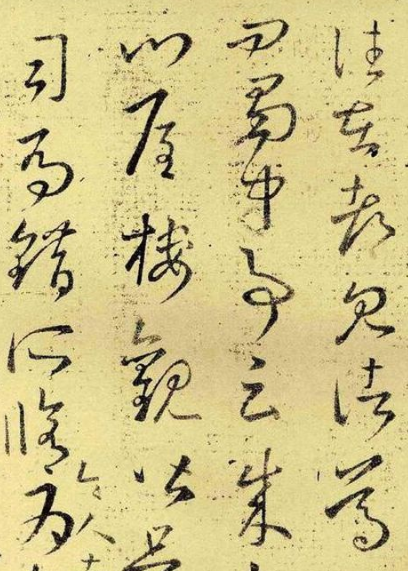 往在都見諸葛
問蜀中事云成
門屋樓觀皆是
司馬錯所脩令人為